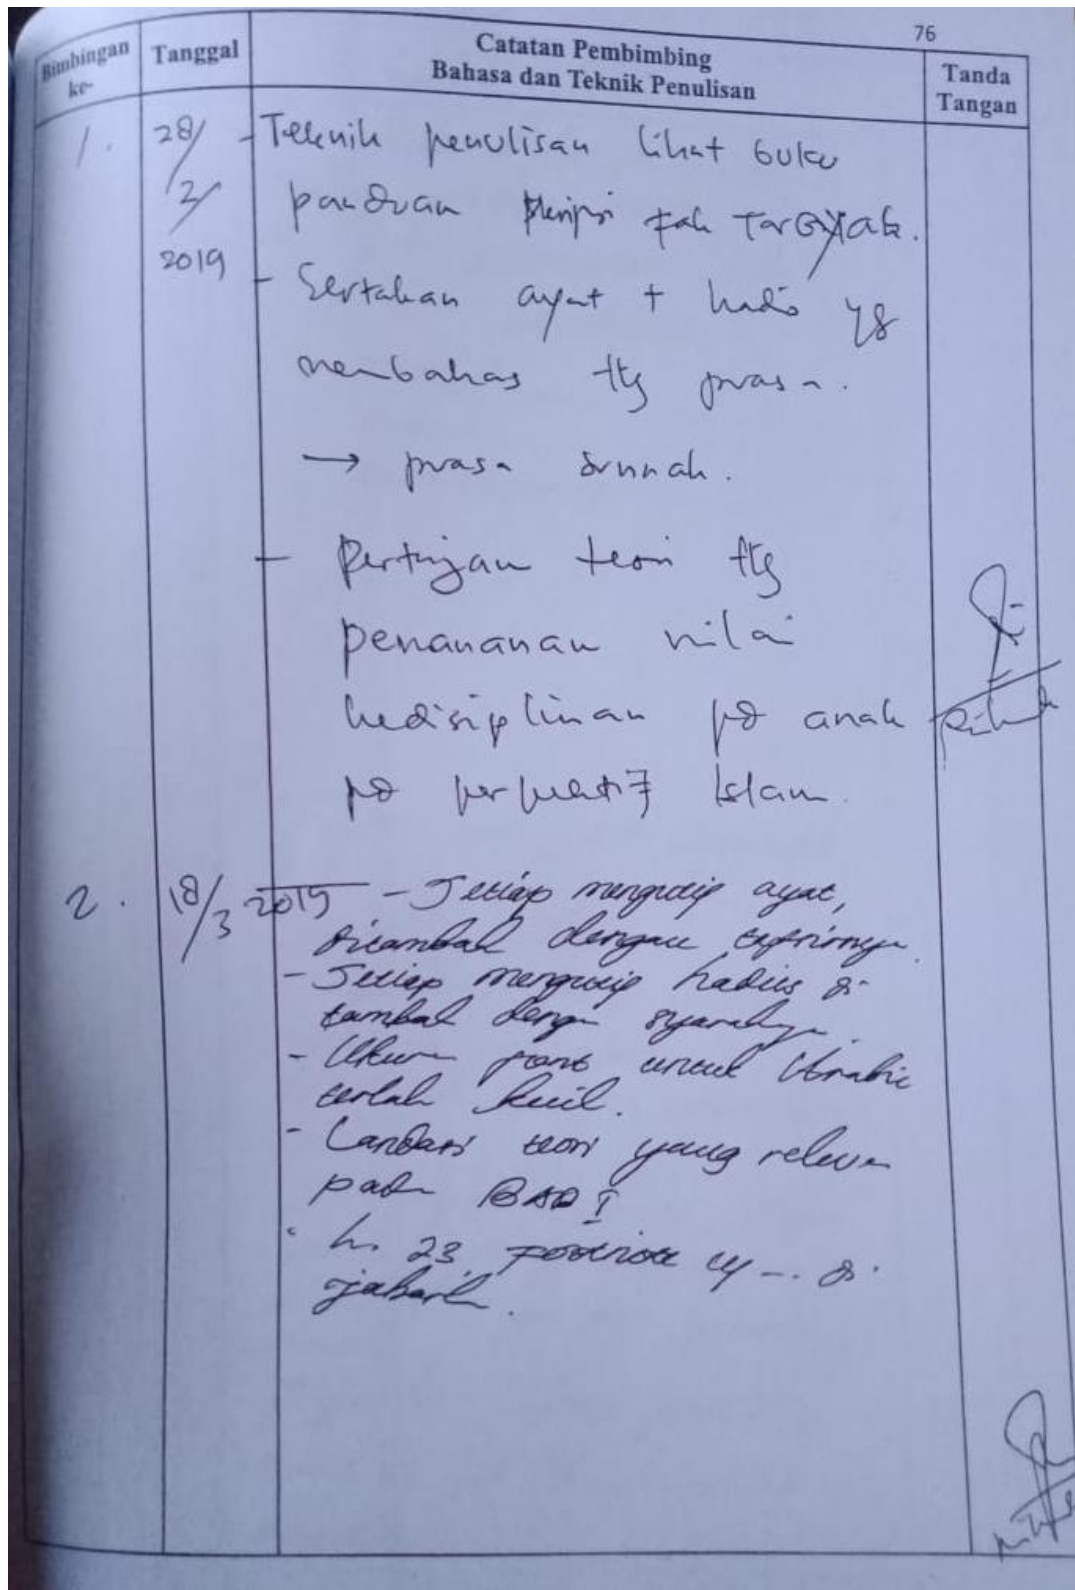 76
Bimbingan ke-
Tanggal
Catatan Pembimbing
Bahasa dan Teknik Penulisan
Tanda
Tangan
1. 28/2/2019
- Teknik penulisan lihat buku
panduan skripsi Fak Tarbiyah.
- Sertakan ayat + hadis yg
membahas ttg puasa.
→ puasa sunnah.
- Pertajam teori ttg
penanaman nilai
kedisiplinan pd anak
pd perspektif Islam.
2. 18/3 2019
- Setiap mengutip ayat,
ditambah dengan tafsirnya.
- Setiap mengutip hadits di
tambah dengan syarahnya.
- Ukuran font untuk Arabic
terlalu kecil.
- Landasi teori yang relevan
pada BAB I
- h. 23 Footnote ... di